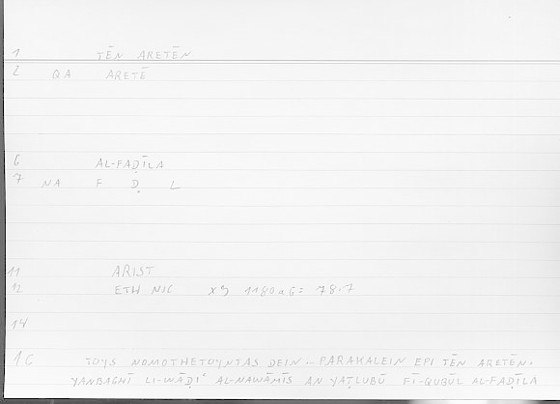 1 TĒN ARETĒN
2 QA ARETĒ
6 AL-FAḌĪLA
7 NA F Ḍ L
11 ARIST
12 ETH NIC X9 1180a6 = 78.7
14
16 TOYS NOMOTHETOYNTAS DEIN... PARAKALEIN EPI TĒN ARETĒN.
YANBAGHĪ LI-WĀḌIʿ AL-NAWĀMĪS AN YAṬLUBŪ FĪ-QUBŪL AL-FAḌĪLA